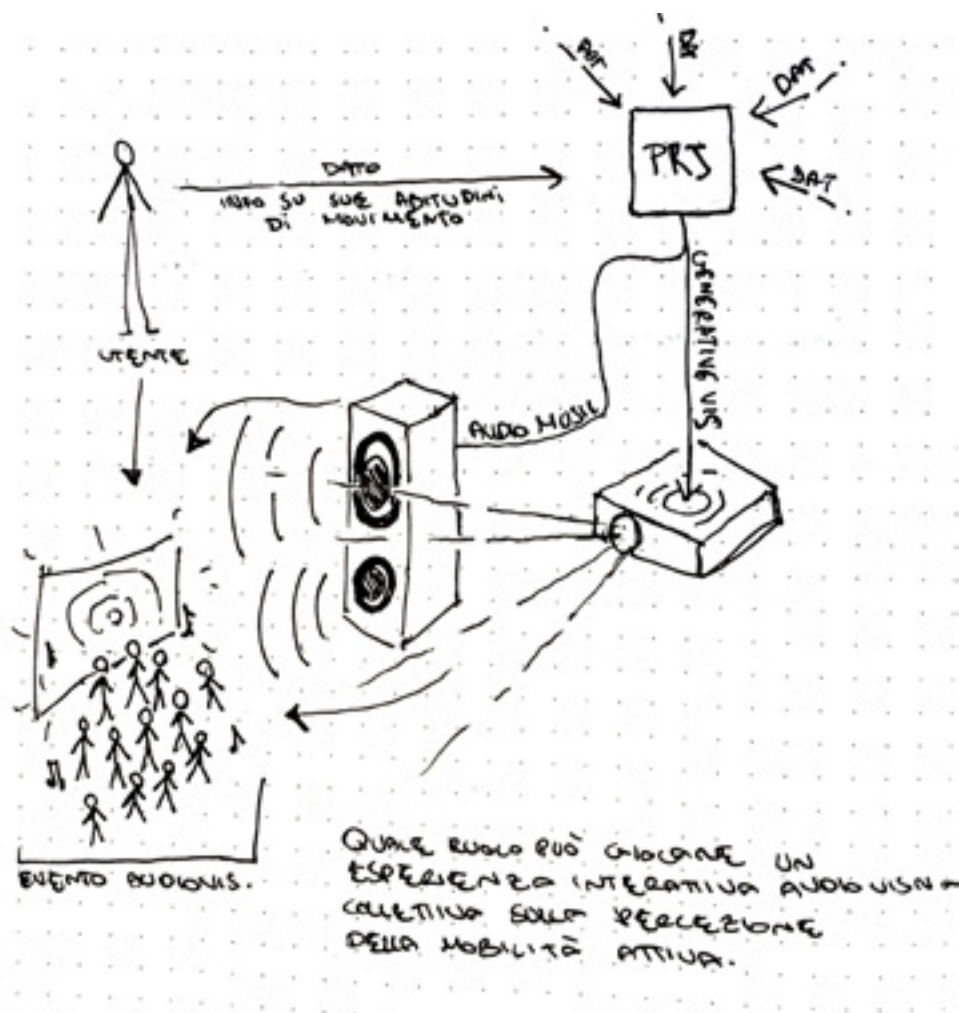 DAT
DAT
DAT
DAT
PRJ
DATO
INFO SU SUE ABITUDINI
DI MOVIMENTO
UTENTE
GENERATING VIS.
AUDIO MUSIC
EVENTO AUDIOVIS.
QUALE RUOLO PUÒ GIOCARE UN
ESPERIENZA INTERATTIVA AUDIOVISIVA
COLLETTIVA SULLA PERCEZIONE
DELLA MOBILITÀ ATTIVA.